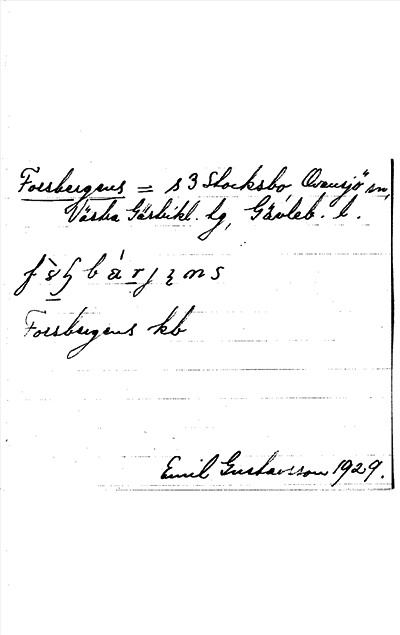 Forsbergens = s 3 Stocksbo Ovansjö sn,
Västra Gästrikl. hg, Gävleb. l.
Forsbergens kb
Emil Gustavsson 1929.